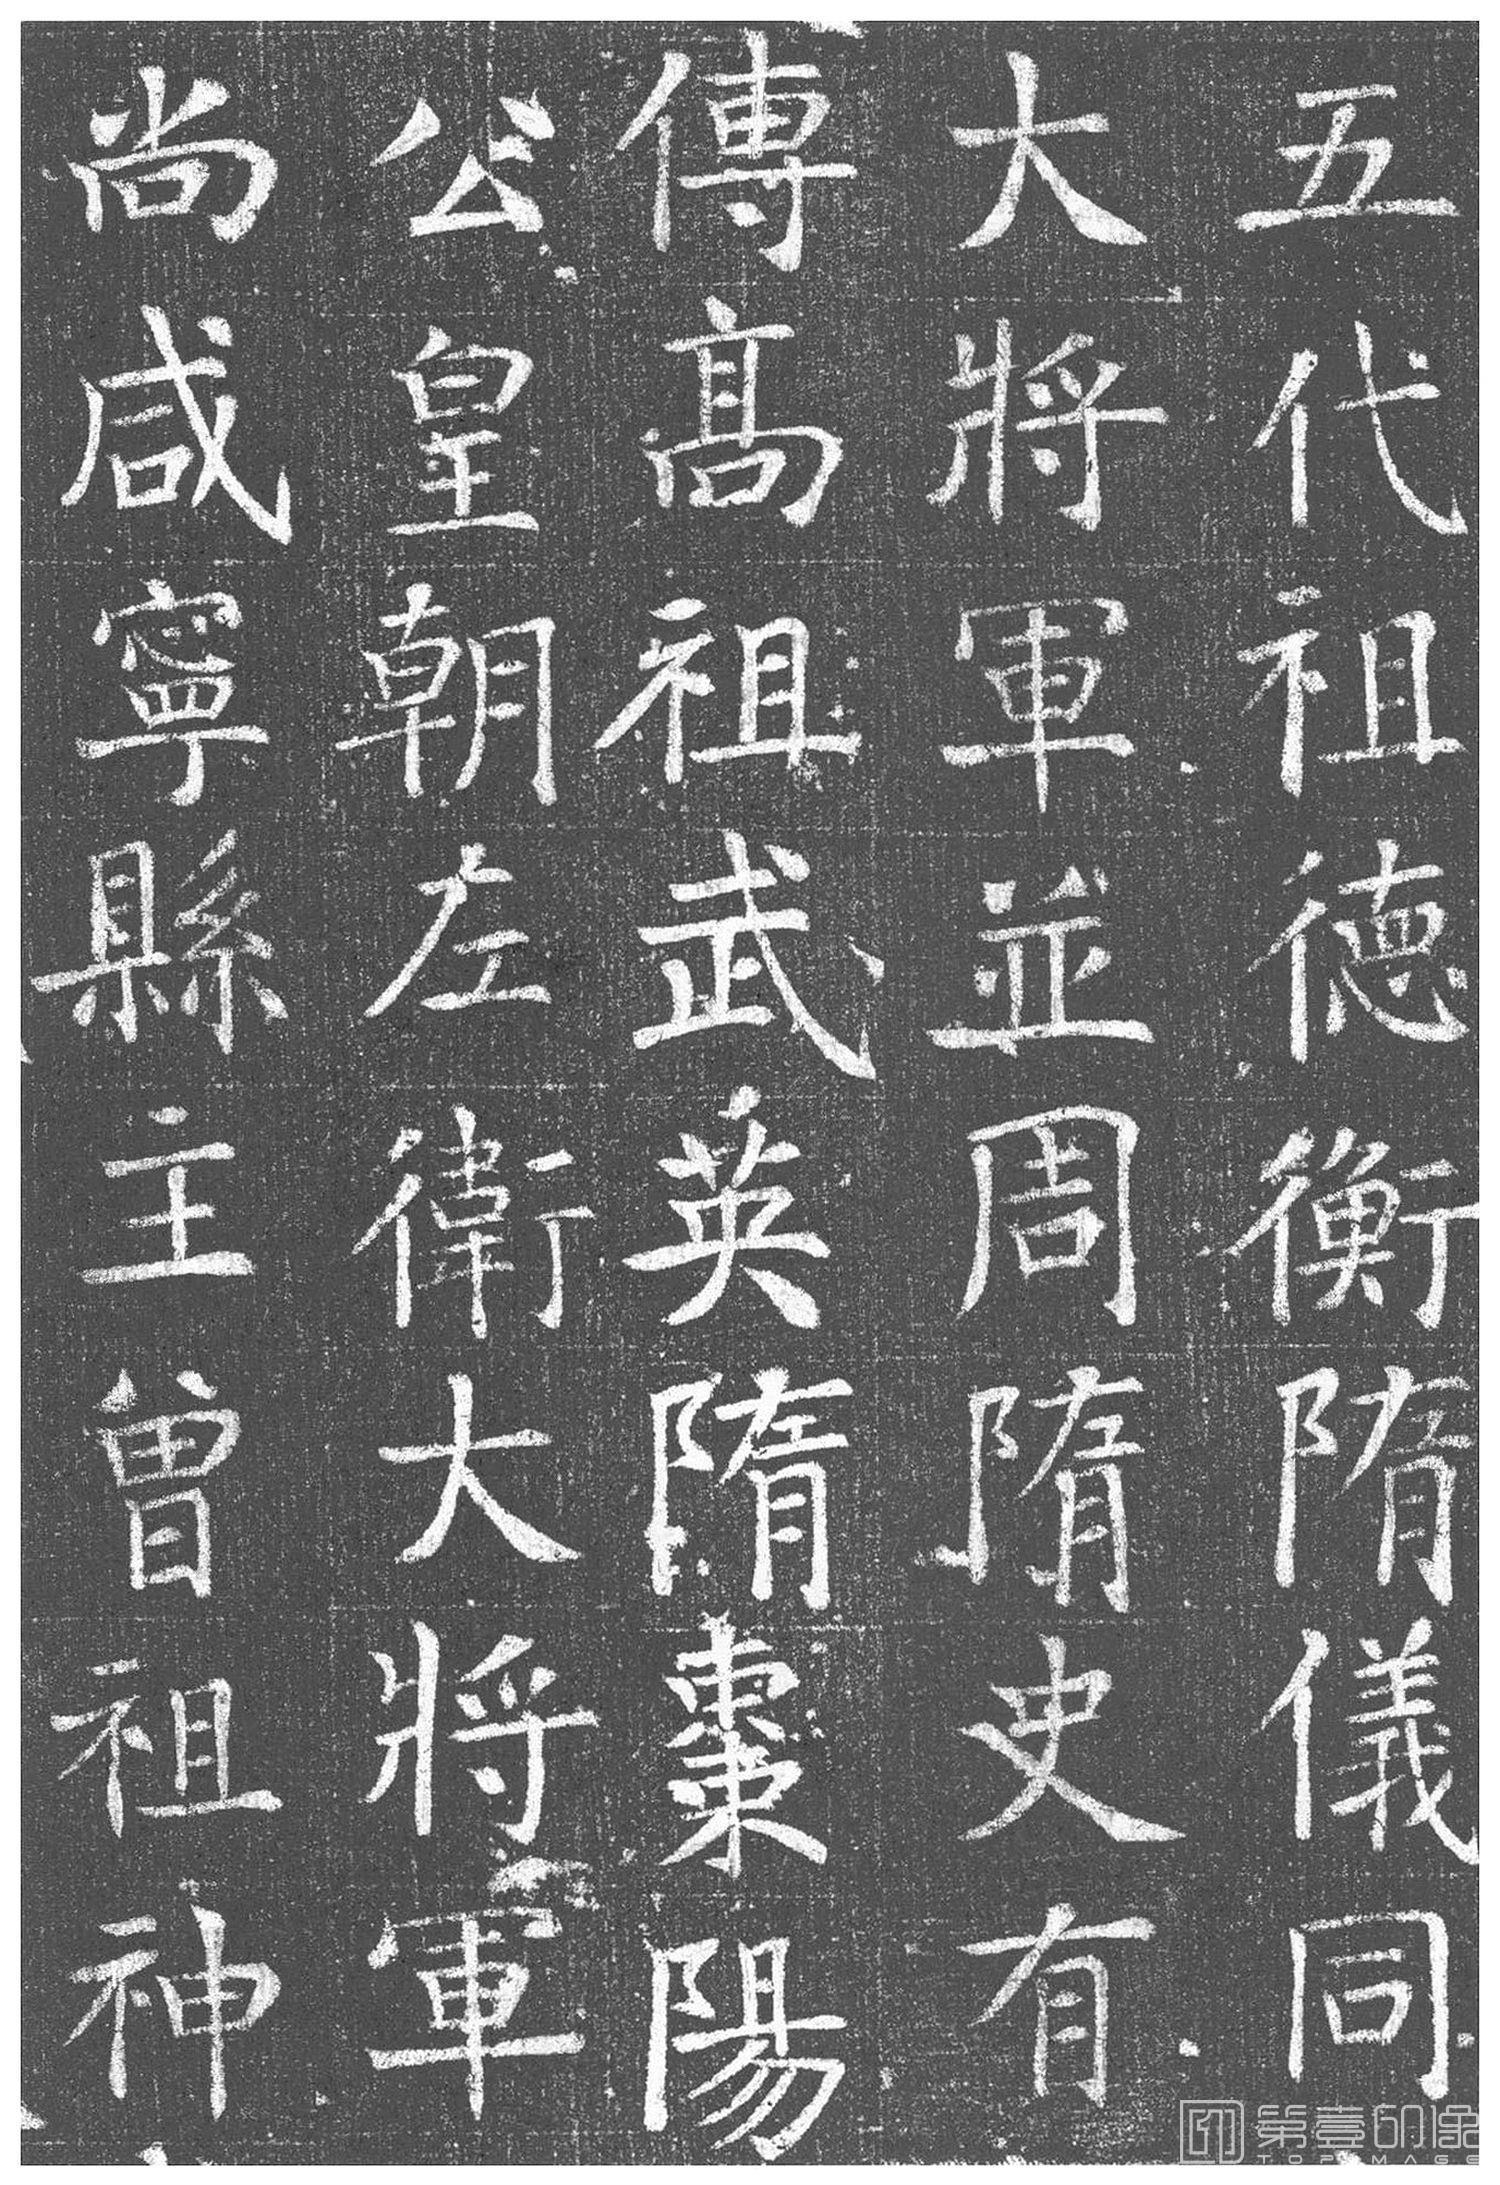 五代祖德衡隋儀同
大將軍並周隋史有
傳高祖武英隋棗陽
公皇朝左衛大將軍
尚咸寧縣主曾祖神
第壹印像
TOP IMAGE